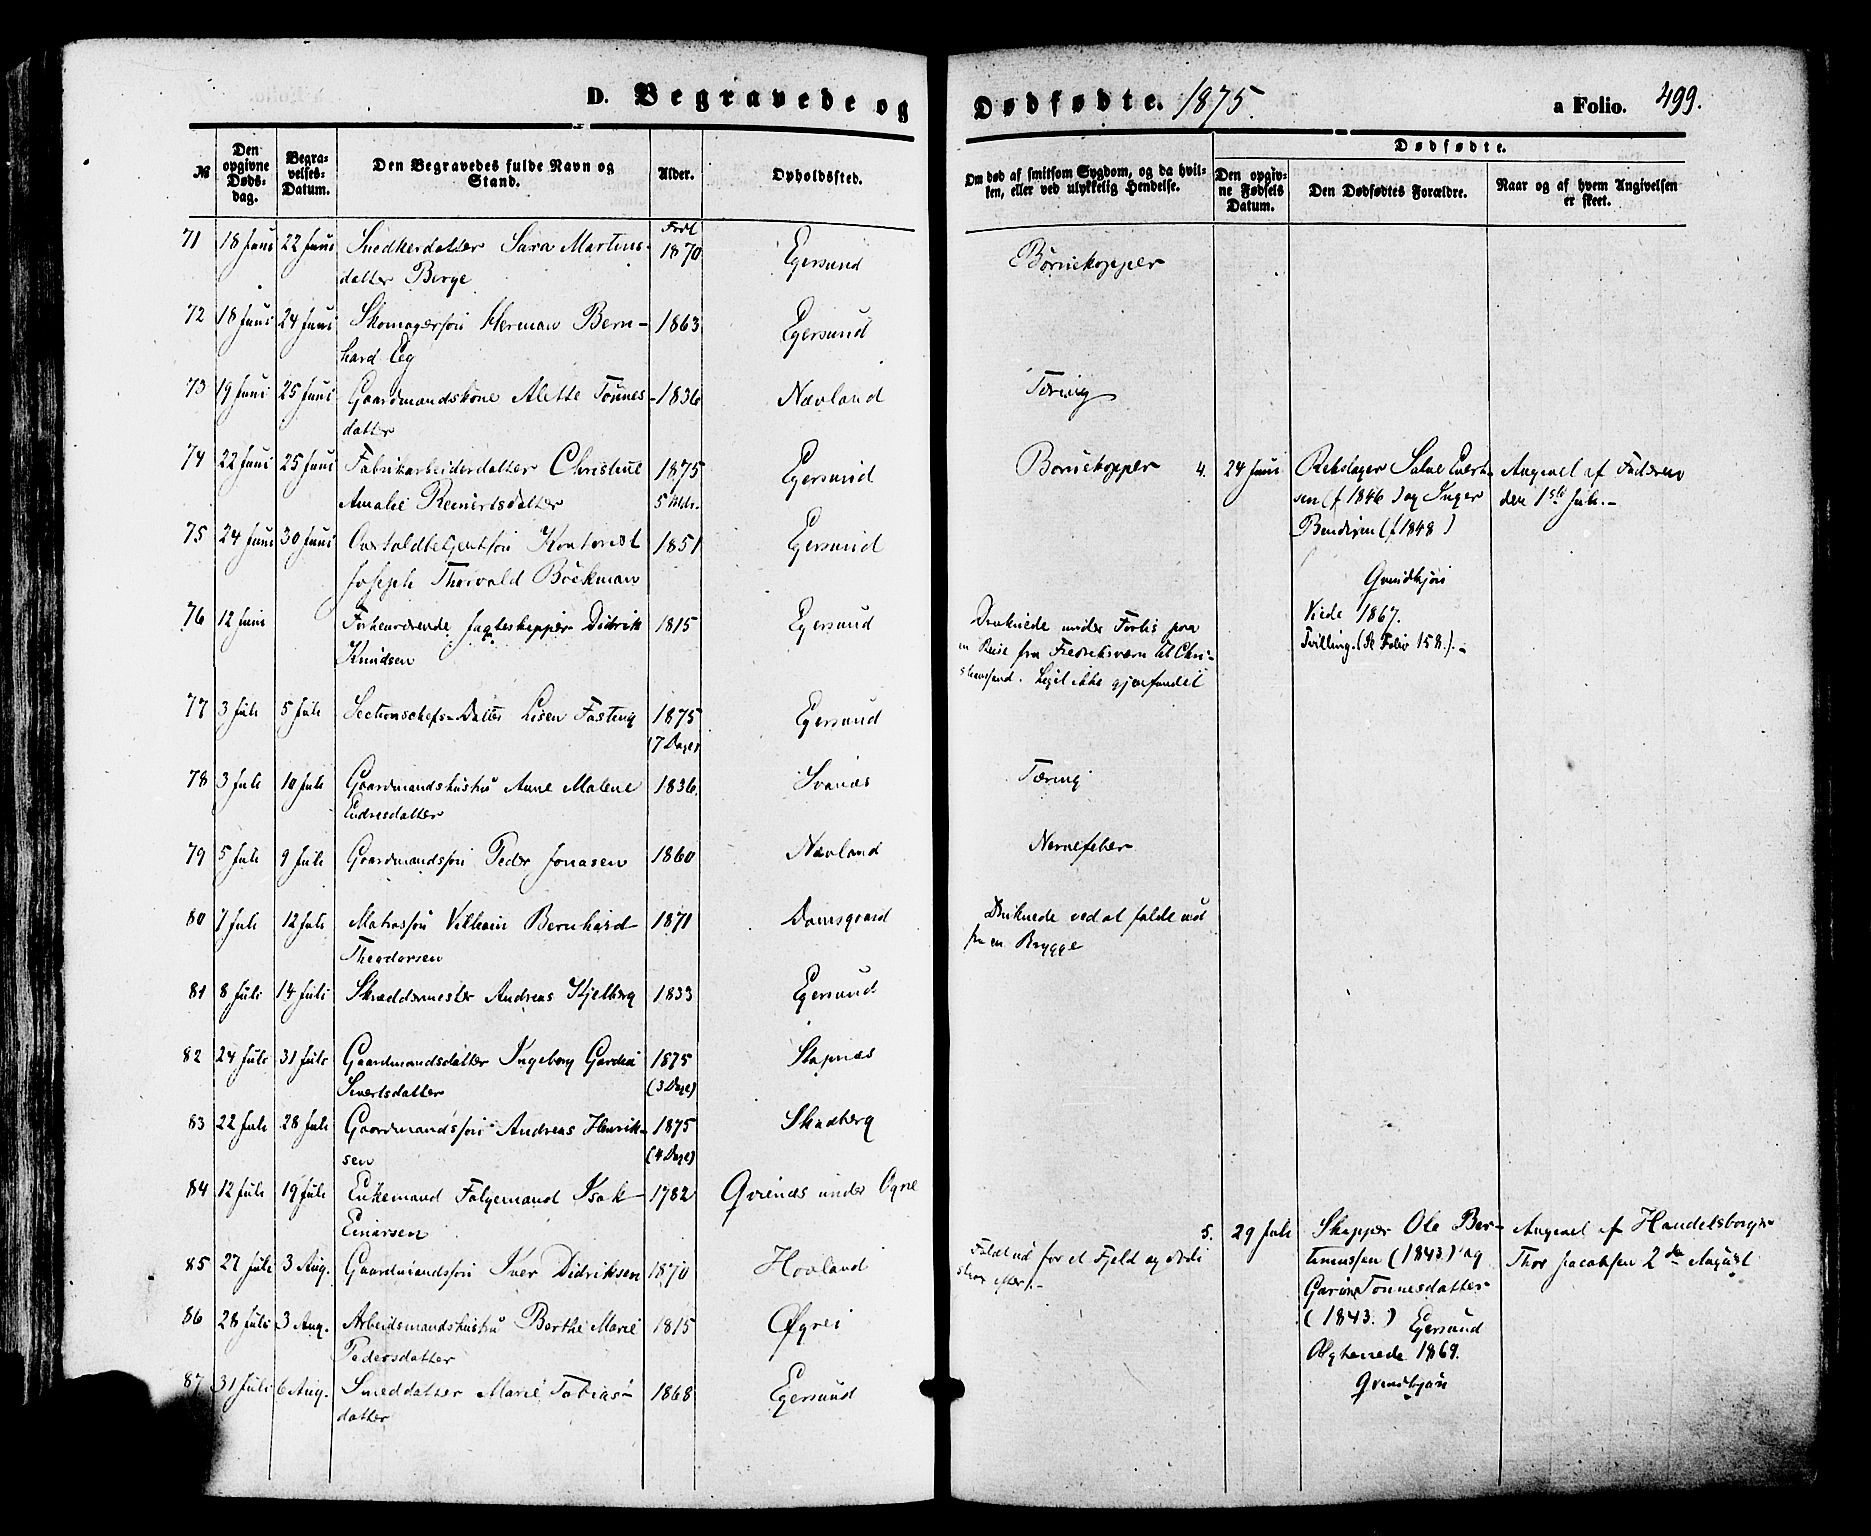 D. Begravede og Dødfødte. 1875. a Folio. 499.
№
Den opgivne Døds-dag.
Begra-velses-Datum.
Den Begravedes fulde Navn og Stand.
Alder.
Opholdssted.
Om død af smitsom Sygdom, og da hvil-ken, eller ved ulykkelig Hendelse.
Dødfødte.
Den opgiv-ne Fødsels Datum.
Den Dødfødtes Forældre.
Naar og af hvem Angivelsen er skeet.
71 18 Juni 22 Juni Snedkerdatter Sara Martins- 1870 Egersund Børnekopper
datter Berge
72 18 Juni 24 Juni Skomagersøn Herman Bern- 1863 Egersund
hard Eeg
73 19 Juni 25 Juni Gaardmandskone Alette Tønnes- 1836 Nævland Tæring
datter
74 22 Juni 25 Juni Fabrikarbeiderdatter Christine 1875 Egersund Børnekopper
Amalie Reinertsdatter 5 Mdr.
4. 24 Juni Rebslager Salve Evert- Angivet af Faderen
sen (f 1846) og Inger den 1ste Juli.-
Bendixen (f. 1848)
Grendkjøn
Viede 1867.
Tvilling. (Se Folio 158.).-
75 24 Juni 30 Juni Overtoldbetjentsøn Kontorist 1851 Egersund
Joseph Thorvald Böckman
76 12 Juni Forhenværende Jagteskipper Didrik 1815 Egersund Druknede under Forlis paa
Knudsen en Reise fra Fredriksværn til Chri-
stiansand. Liget ikke gjenfundet
77 3 Juli 5 Juli Sectionschefs-Datter Lisen Fasting 1875 Egersund
(7 Dage)
78 3 Juli 10 Juli Gaardmandshustru Anne Malene 1836. Svanæs Tæring
Endresdatter
79 5 Juli 9 Juli Gaardmandssøn Peder Jonasen 1860 Nævland Nervefeber
80 7 Juli 12 Juli Matrossøn Vilhelm Bernhard 1871 Damsgaard Druknede ved at falde ud
Theodorsen fra en Brygge
81 8 Juli 14 Juli Skræddermester Andreas Kjelberg 1833 Egersund
82 24 Juli 31 Juli Gaardmandsdatter Ingeborg Gardia 1875 Stapnæs
Sivertsdatter (3 Dage)
83 22 Juli 28 Juli Gaardmandssøn Andreas Henrik- 1875 Skadberg
sen (4 Dage)
84 12 Juli 19 Juli Enkemand Følgemand Isak 1782 Qvienæs under Ogne
Einarsen
85 27 Juli 3 Aug. Gaardmandssøn Iver Didriksen 1870 Hovland Faldt ud for et Fjeld og døde
strax efter.-
5. 29 Juli Skipper Ole Ber- Angivet af Handelsborger
tinussen (1843) og Thor Jacobsen 2den August
Garine Tønnesdatter
(1843.) Egersund
Ægteviede 1869.
Qvindkjøn
86 28 Juli 3 Aug. Arbeidsmandshustru Berthe Marie 1815 Øgrei
Pedersdatter
87 31 Juli 6 Aug. Smeddatter Marie Tobias- 1868 Egersund
datter